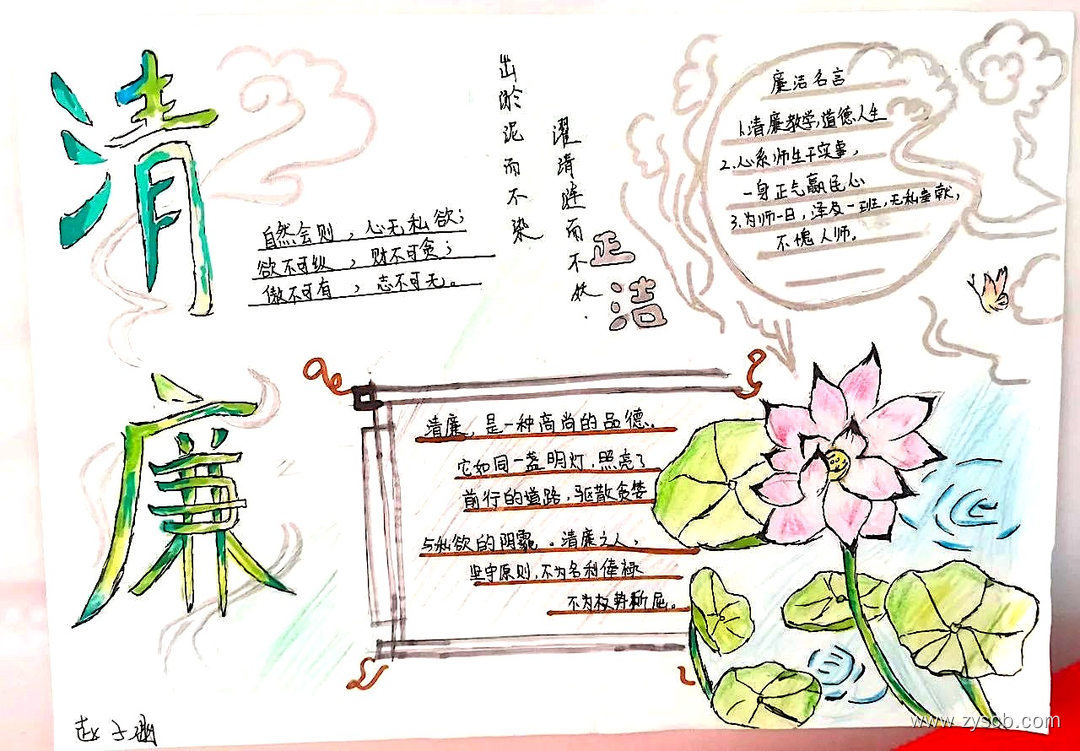 清
廉
出淤泥而不染
濯清涟而不妖.
正
洁
自然会则，心无私欲；
欲不可纵，财不可贪；
傲不可有，志不可无。
廉洁名言
1.清廉教学,道德人生
2.心系师生干实事，
一身正气赢民心
3.为师一日，泽及一班，无私奉献，
不愧人师。
清廉，是一种高尚的品德。
它如同一盏明灯，照亮了
前行的道路，驱散贪婪
与私欲的阴霾。清廉之人，
坚守原则，不为名利俸禄
不为权势所屈。
赵子
www.zyscb.com